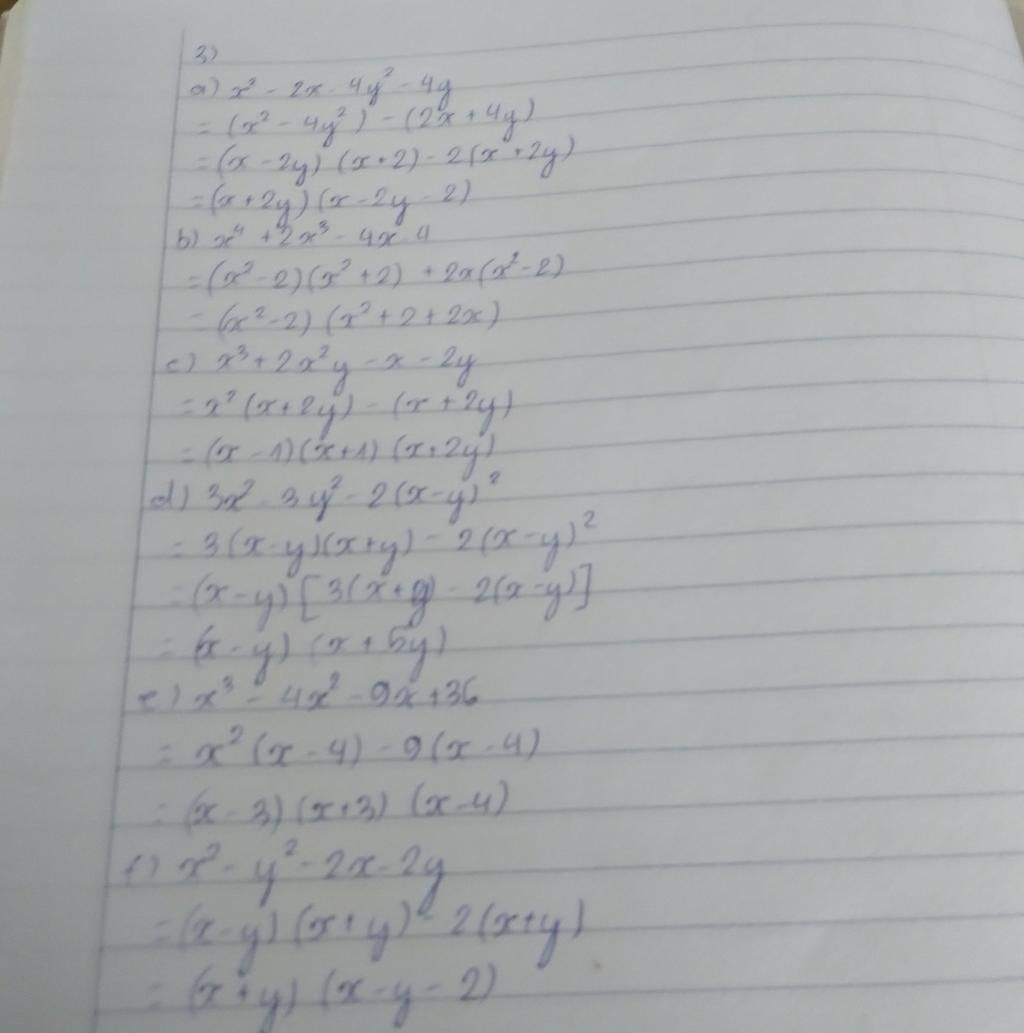 3)
a) x² - 2x - 4y² - 4y
= (x² - 4y²) - (2x + 4y)
= (x - 2y) (x + 2) - 2(x + 2y)
= (x + 2y) (x - 2y - 2)
b) x⁴ + 2x³ - 4x - 4
= (x² - 2)(x² + 2) + 2x(x² - 2)
= (x² - 2) (x² + 2 + 2x)
c) x³ + 2x²y - x - 2y
= x² (x + 2y) - (x + 2y)
= (x - 1)(x + 1) (x + 2y)
d) 3x² - 3y² - 2(x - y)²
= 3(x - y)(x + y) - 2(x - y)²
= (x - y) [3(x + y) - 2(x - y)]
= (x - y) (x + 5y)
e) x³ - 4x² - 9x + 36
= x² (x - 4) - 9(x - 4)
= (x - 3) (x + 3) (x - 4)
f) x² - y² - 2x - 2y
= (x - y) (x + y) - 2(x + y)
= (x + y) (x - y - 2)